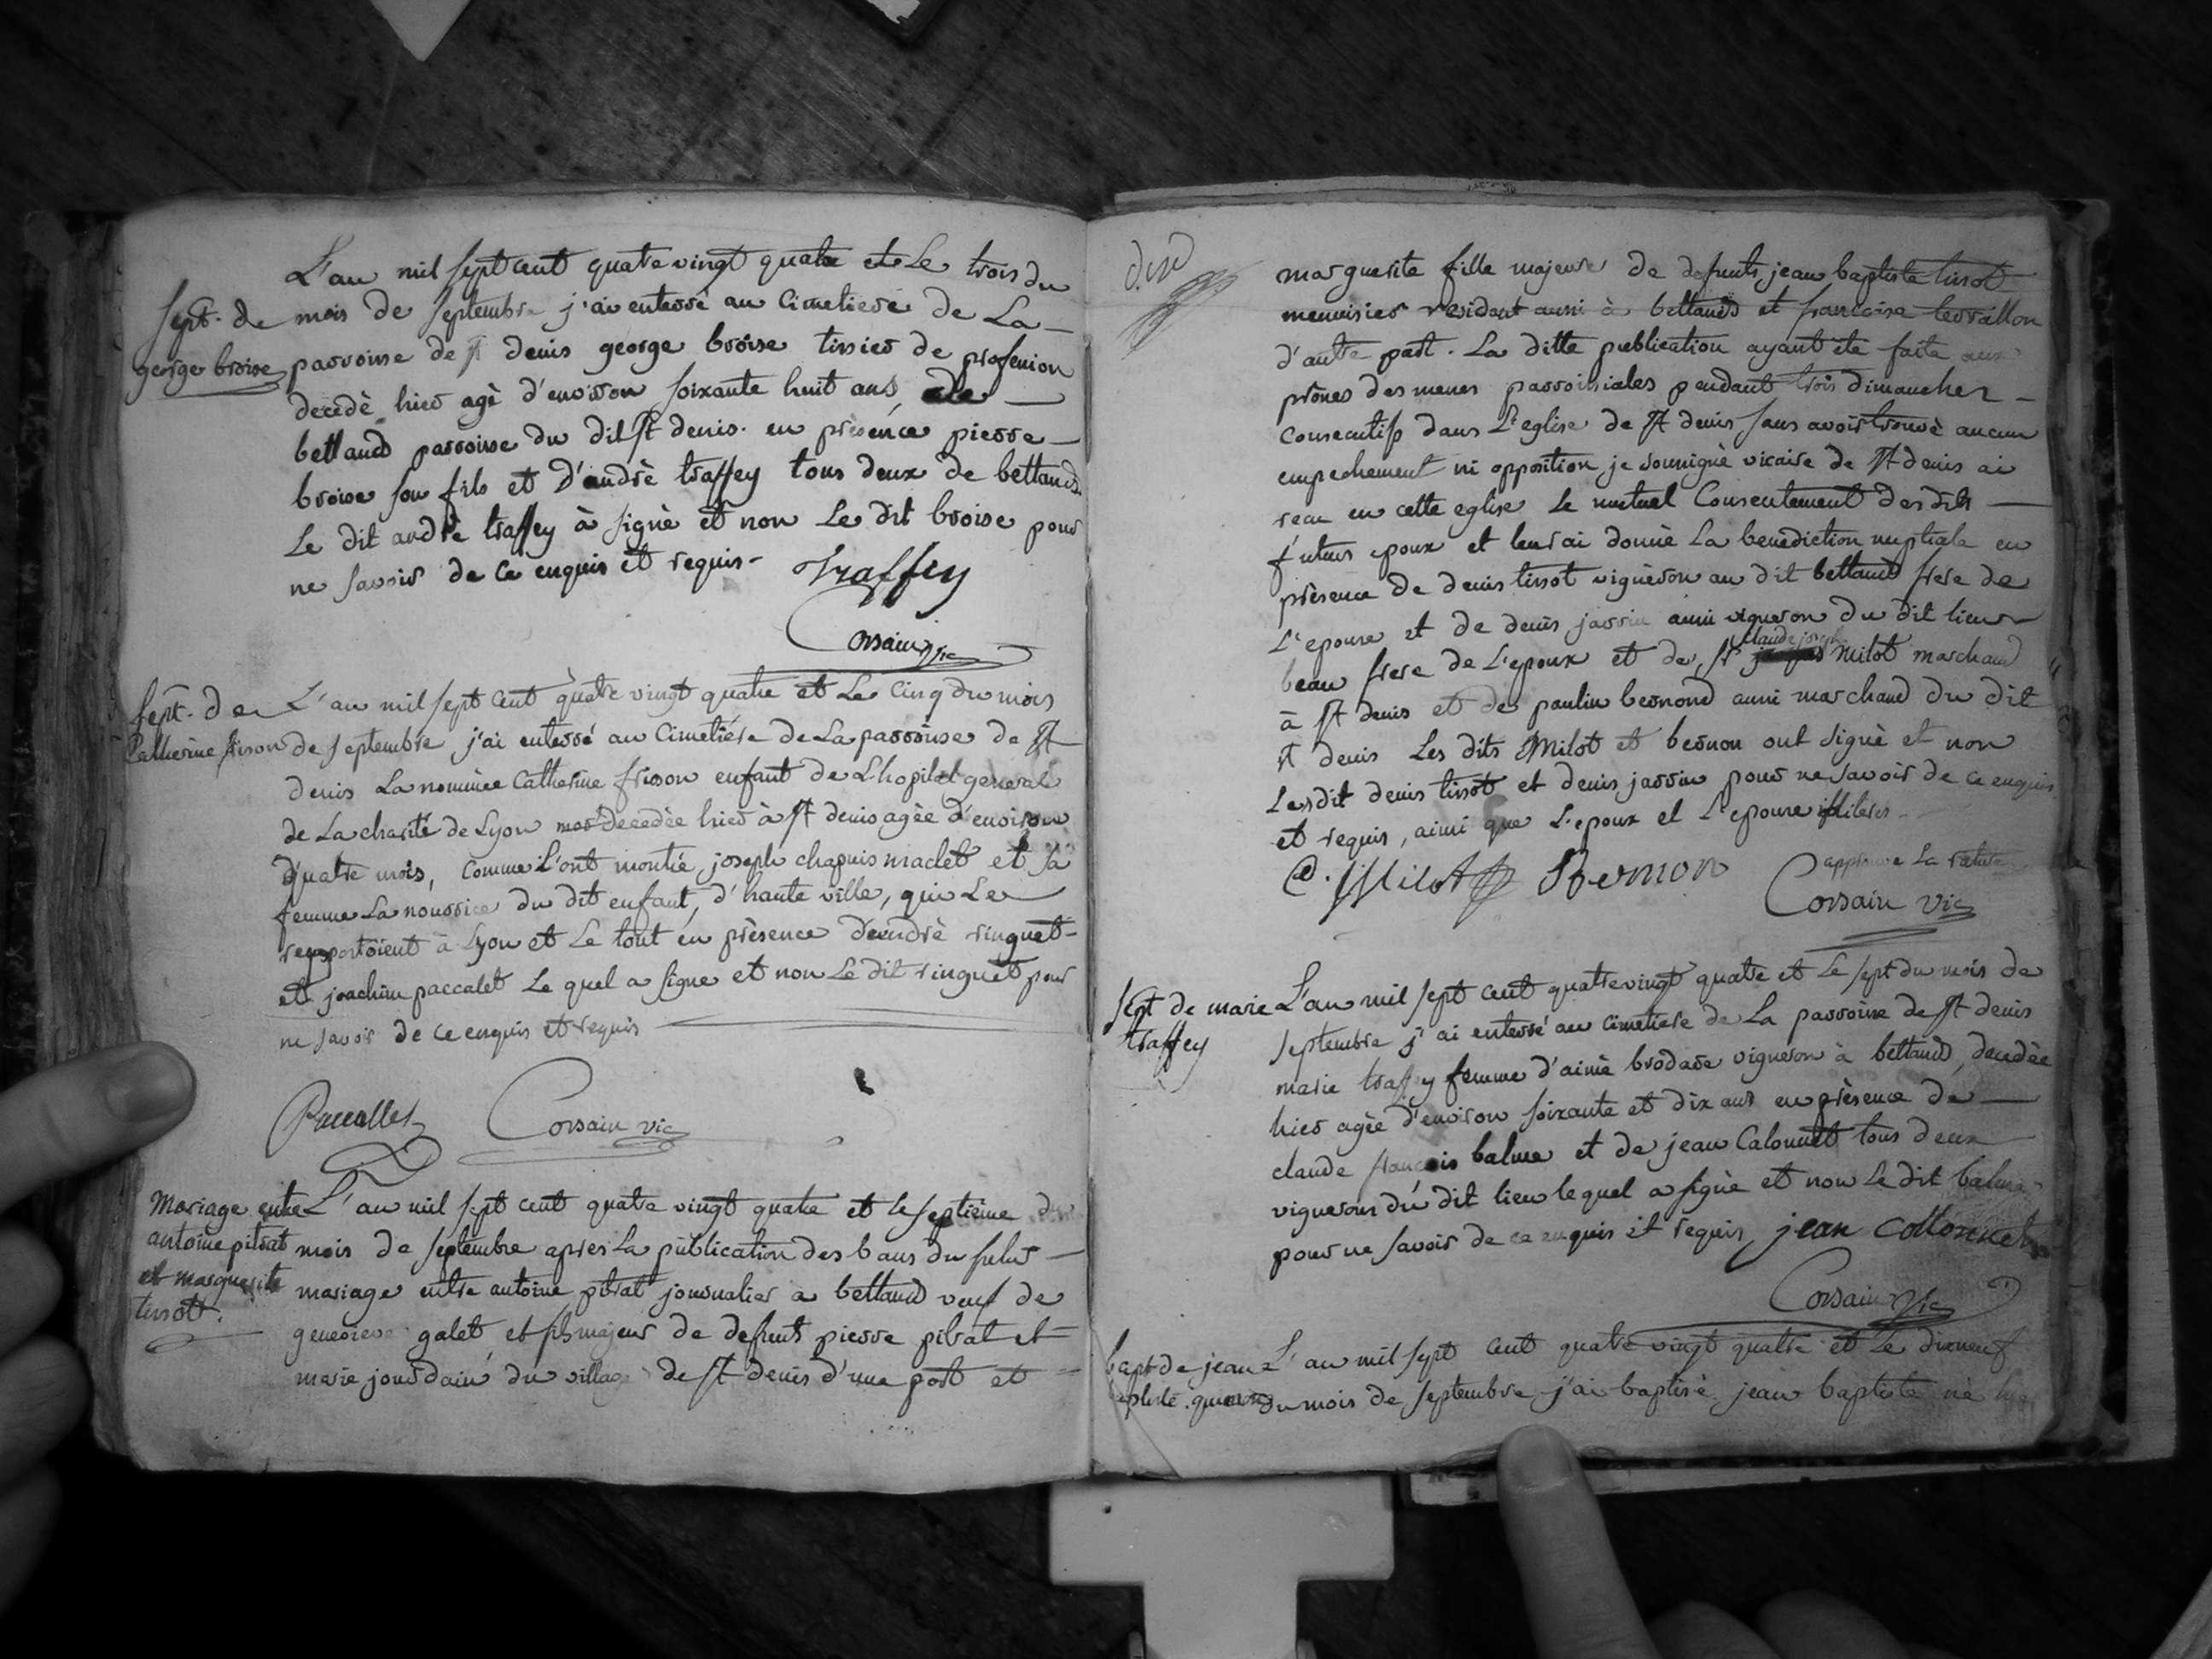 L'an mil sept cent quatre vingt quatre et Le trois du
sept. de mois de septembre j'ai enterré au Cimetiere de La
george broise parroisse de st denis george broise tissier de profession
decedè hier agè d'environ soixante huit ans de
bettand parroisse du dit st denis. en presence pierre
broise son fils et D'andrè traffey tous deux de bettand.
Le dit andrè traffey à signè et non Le dit broise pour
ne savoir de ce enquis et requis. Traffey
Corsain vic
sept. de L'an mil sept cent quatre vingt quatre et Le Cinq du mois
Catherine frison de septembre j'ai enterré au Cimetiére de La parroisse de st
denis La nommèe Catherine frison enfant de L'hopital general
de La charité de Lyon decedèe hier à st denis agèe d'environ
quatre mois, comme L'ont montré joseph chapuis maclet et sa
femme La nourrice du dit enfant, d'haute ville, qui Le
rapportoient à Lyon et Le tout en prèsence d'andrè ringuet
et joachim paccalet Le quel a signe et non Le dit ringuet pour
ne savoir de ce enquis et requis
Paccallet Corsain vic
Mariage entre L'an mil sept cent quatre vingt quatre et le septieme du
antoine pitrat mois de septembre apres La publication des bans du futur
et marguerite mariage entre antoine pitrat journalier a bettand veuf de
tissot. genevieve galet et fils majeur de defunt pierre pitrat et
marie jourdain du village de st denis d'une part et
marguerite fille majeure de defunts jean baptiste tissot
menuisier residant aussi à bettand et francoise
d'autre part. La ditte publication ayant ete faite aux
prônes des messes parroissiales pendant trois dimanches
consecutifs dans L'eglise de st denis sans avoir trouvè aucun
empechement ni opposition je soussignè vicaire de st denis ai
recu en cette eglise Le mutuel Consentement des dits
futurs epoux et leur ai donnè La benediction nuptiale en
prèsence de denis tissot vigneron au dit bettand frere de
L'epouse et de denis jarrin aussi vigneron du dit lieu
claude joseph
beau frere de L'epoux et de sr milot marchand
à st denis et de paulin bernond aussi marchand du dit
st denis Les dits Milot et bernon ont signè et non
Lesdit denis tissot et denis jarrin pour ne savoir de ce enquis
et requis, ainsi que L'epoux et L'epouse illiteres.
C. j Milot Bernon approuve La rature
Corsain vic
sept de marie L'an mil sept cent quatre vingt quatre et Le sept du mois de
traffey septembre j'ai enterré au cimetiere de La parroisse de st denis
marie traffey femme d'aimè brodare vigneron à bettand, decedèe
hier agèe d'environ soixante et dix ans en prèsence de
claude francois balme et de jean Calonnet tous deux
vignerons du dit lieu lequel a signè et non Le dit balme
pour ne savoir de ce enquis et requis jean collonnet
Corsain Vic
bapt de jean L'an mil sept cent quatre vingt quatre et Le dixneuf
du mois de septembre j'ai baptisè jean baptiste nè hier